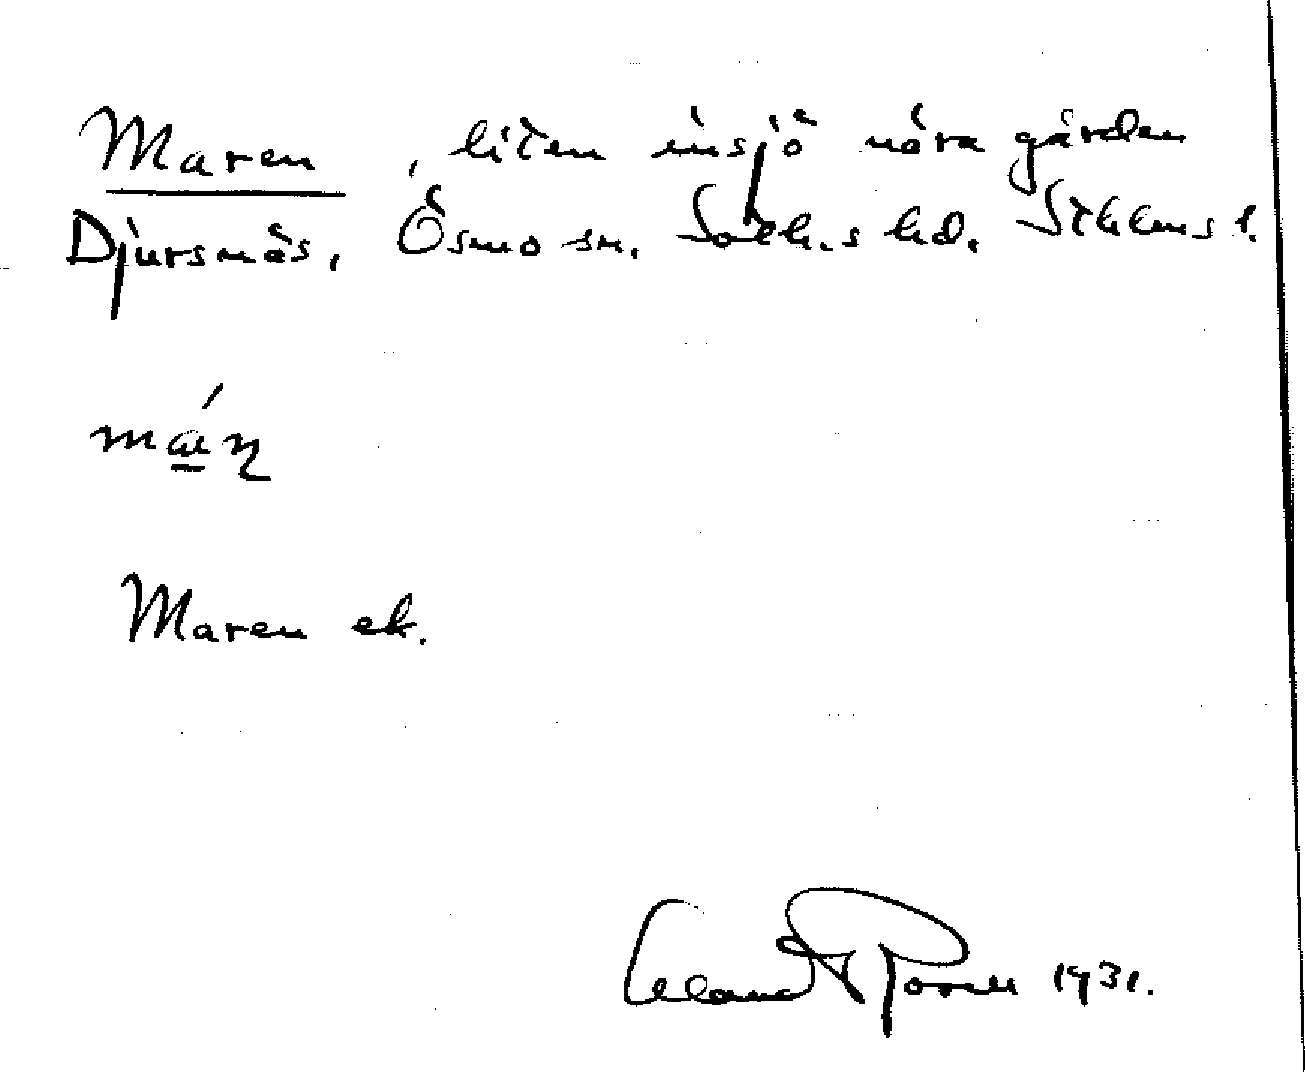 Maren, liten insjö nära gården
Djursnäs, Ösmo sn. Sotch.s hd. Sthlms l.
Maren ek.
1931.